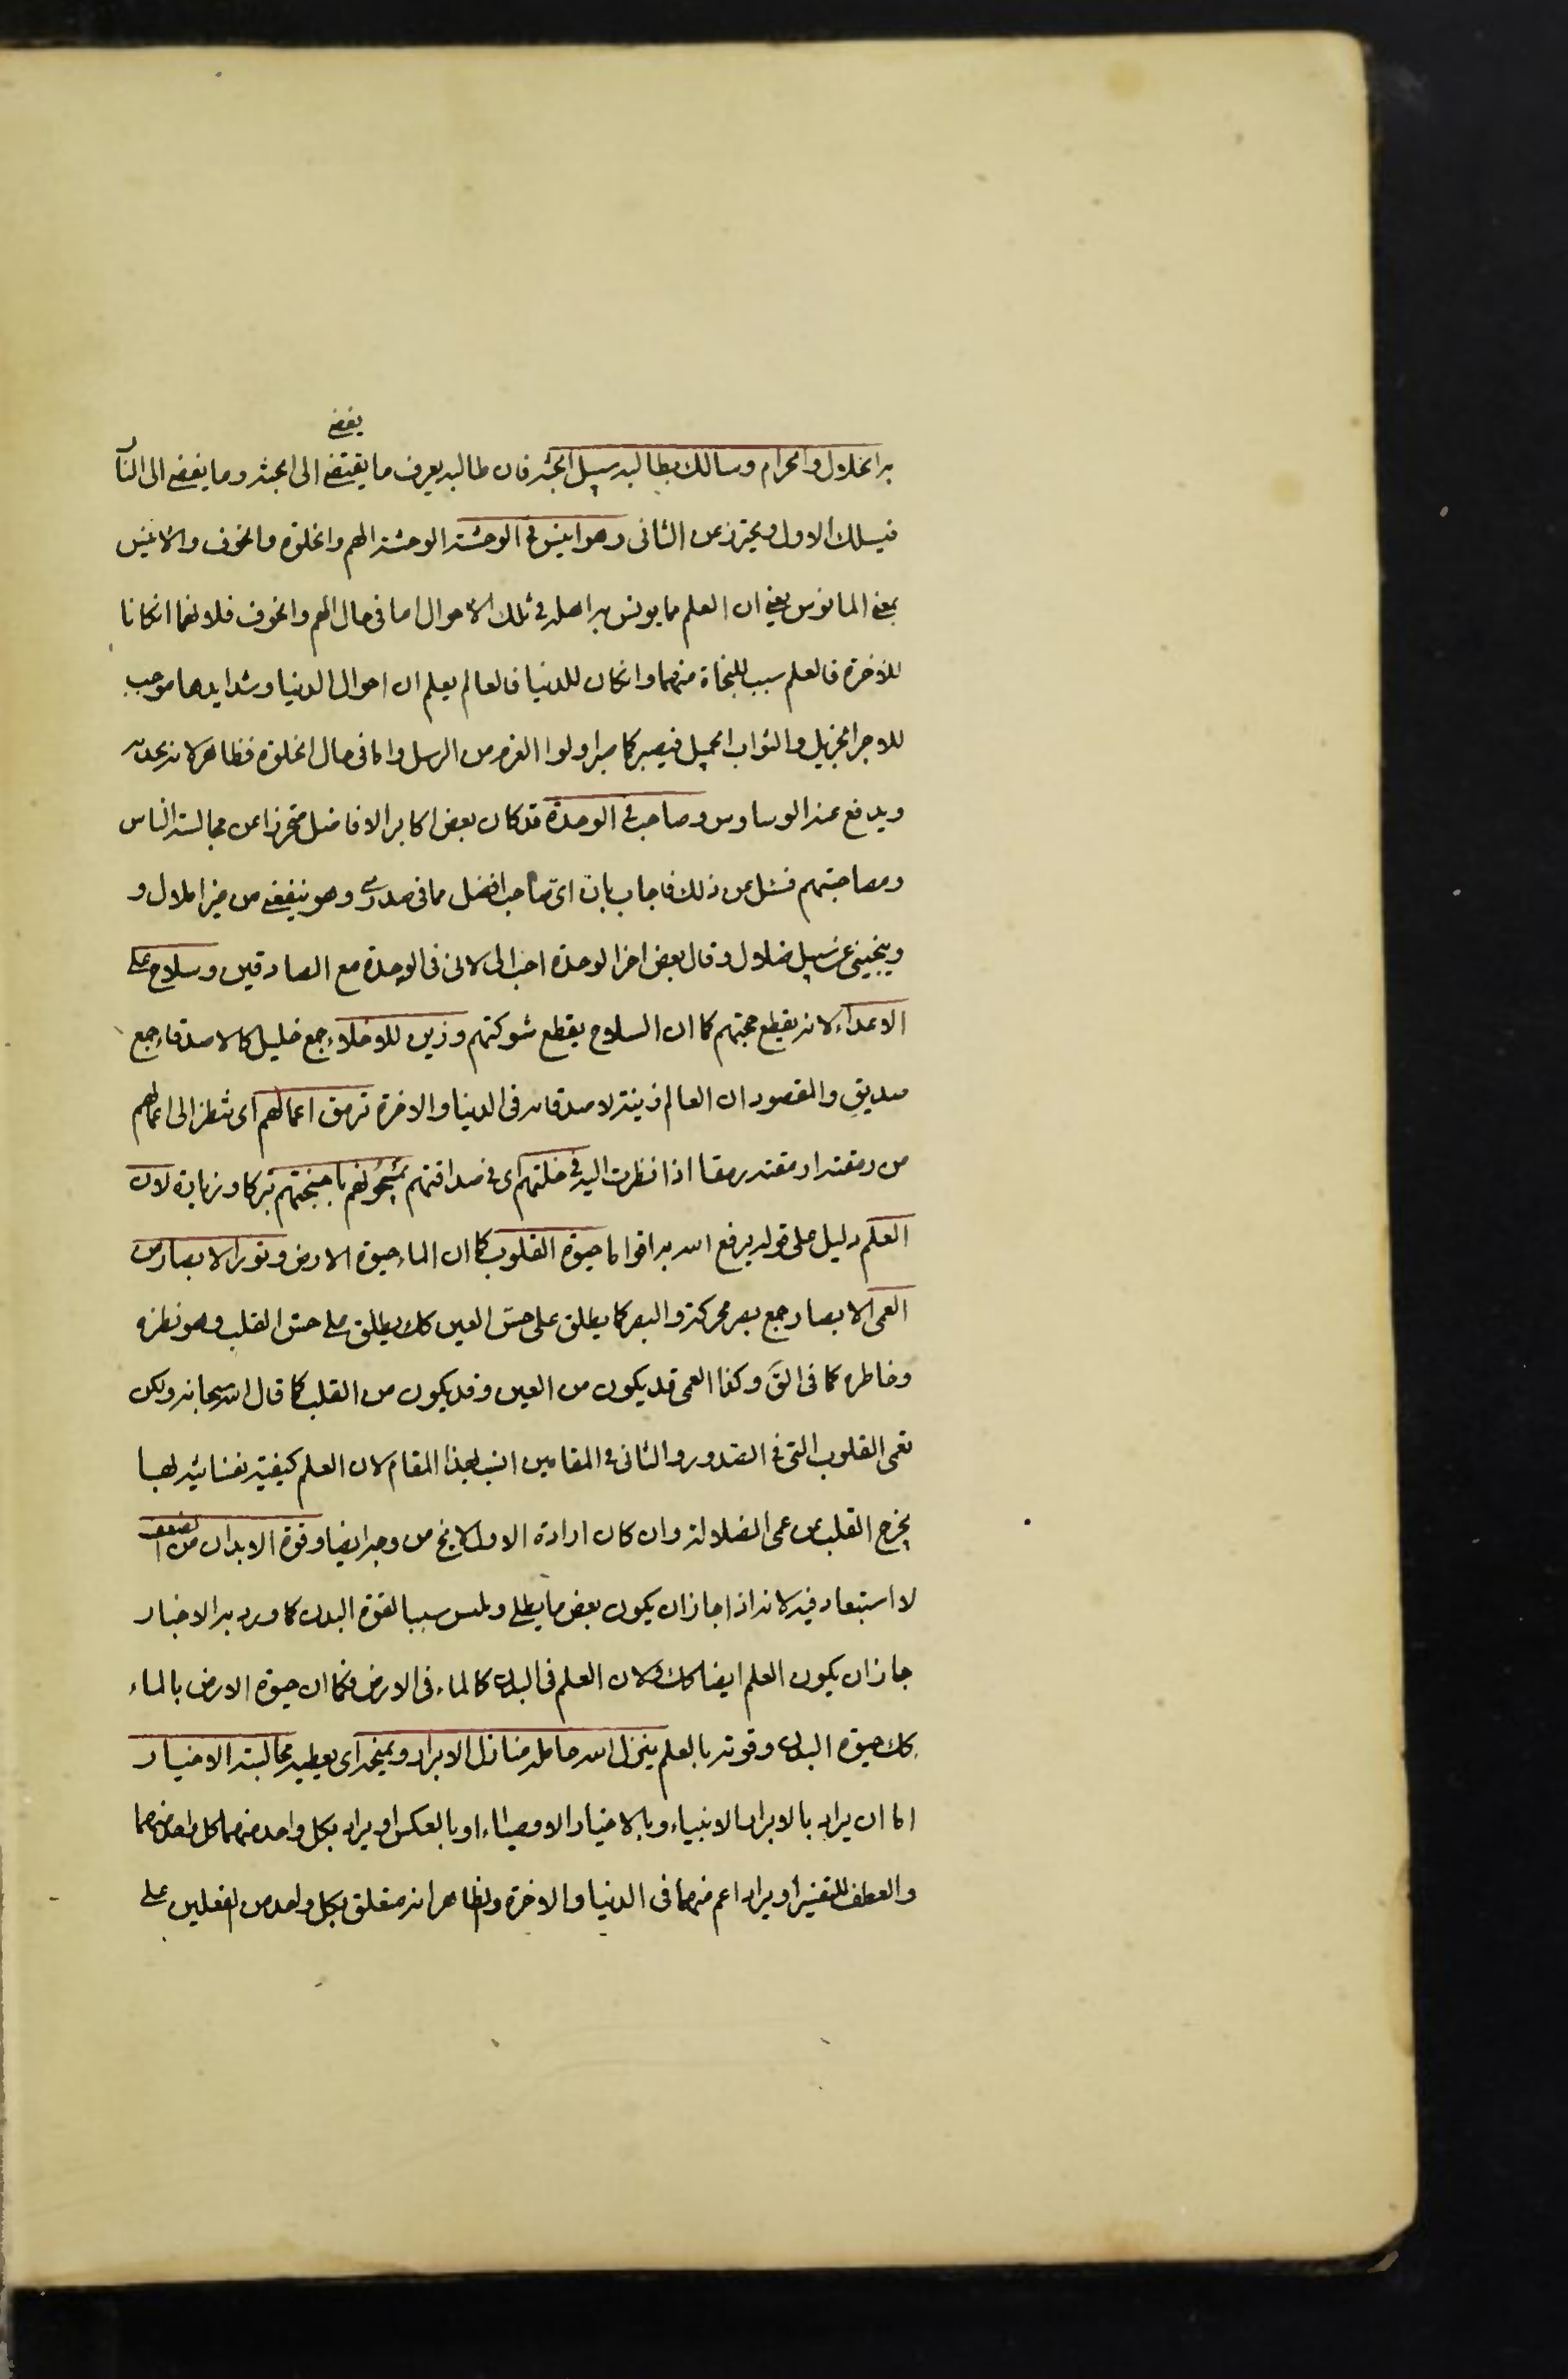 يفضى
به الحلال والحرام وسالك بطالبه سبيل الجنة فان طالبه يعرف ما يقتضى الى الجنة وما يفضى الى النار
فيسلك الاول ويحترز عن الثانى وهو انيس فى الوحشة الوحشة الهم والخلوة والخوف والانيس
بمعنى المانوس يعنى ان العلم مما يونس به اهله فى تلك الاحوال اما فى حال الهم والخوف فلانهما انكانا
للاخرة فالعلم سبب للنجاة منهما وانكان للدنيا فالعالم يعلم ان احوال الدنيا وشدايدها موجب
للاجر الجزيل والثواب الجميل فيصبر كما صبر اولوا العزم من الرسل واما فى حال الخلوة فظاهر لانه يحدثه
ويدفع عنه الوساوس وصاحب فى الوحدة قد كان بعض اكابر الافاضل متحرزا عن مجالسة الناس
ومصاحبتهم فسئل عن ذلك فاجاب بان اى صاحب افضل مما فى صدرى وهو ينفعنى من غير املال و
وينجينى عن سبيل ضلال وقال بعض اخر الوحدة احب الى لانى فى الوحدة مع الصادقين وسلاح على
الاعداء لانه يقطع حجتهم كما ان السلاح يقطع شوكتهم وزين للاخلاء جمع خليل كالاصدقاء جمع
صديق والمقصود ان العالم زينة لاصدقائه فى الدنيا والاخرة ترمق اعمالهم اى تنظر الى اعمالهم
من رمقته ارمقته رمقا اذا نظرت اليه فى خلتهم اى فى صداقتهم يمسحونهم باجنحتهم تبركا وزيادة لان
العلم دليل على قوله يرفع الله به اقواما حيوة القلوب كما ان الماء حيوة الارض ونور الابصار من
العمى الابصار جمع بصر محركة والبصر كما يطلق على حس العين كك يطلق على حس القلب وهو نظره
وخاطره كما فى الق وكذا العمى قد يكون من العين وقد يكون من القلب كما قال الله سبحانه ولكن
تعمى القلوب التى فى الصدور والثانى فى المقامين انسب بهذا المقام لان العلم كيفية نفسانية بها
يخرج القلب عن عمى الضلالة وان كان ارادة الاول لا يخ من وجه ايضا وقوة الابدان من الضعف
لا استبعاد فيه لانه اذا جاز ان يكون بعض ما يطلى ويلبس سببا لقوة البدن كما ورد به الاخبار
جاز ان يكون العلم ايضا كك ولان العلم فى البدن كالماء فى الارض فكما ان حيوة الارض بالماء
كك حيوة البدن وقوته بالعلم ينزل الله حامله منازل الابرار ويمنحه اى يعطيه مجالسة الاخيار
اما ان يراد بالابرار الانبياء وبالاخيار الاوصياء او بالعكس او يراد بكل واحد منهما كل واحد منهما
والعطف للتفسير او يراد اعم منهما فى الدنيا والاخرة والظاهر انه متعلق بكل واحد من الفعلين على